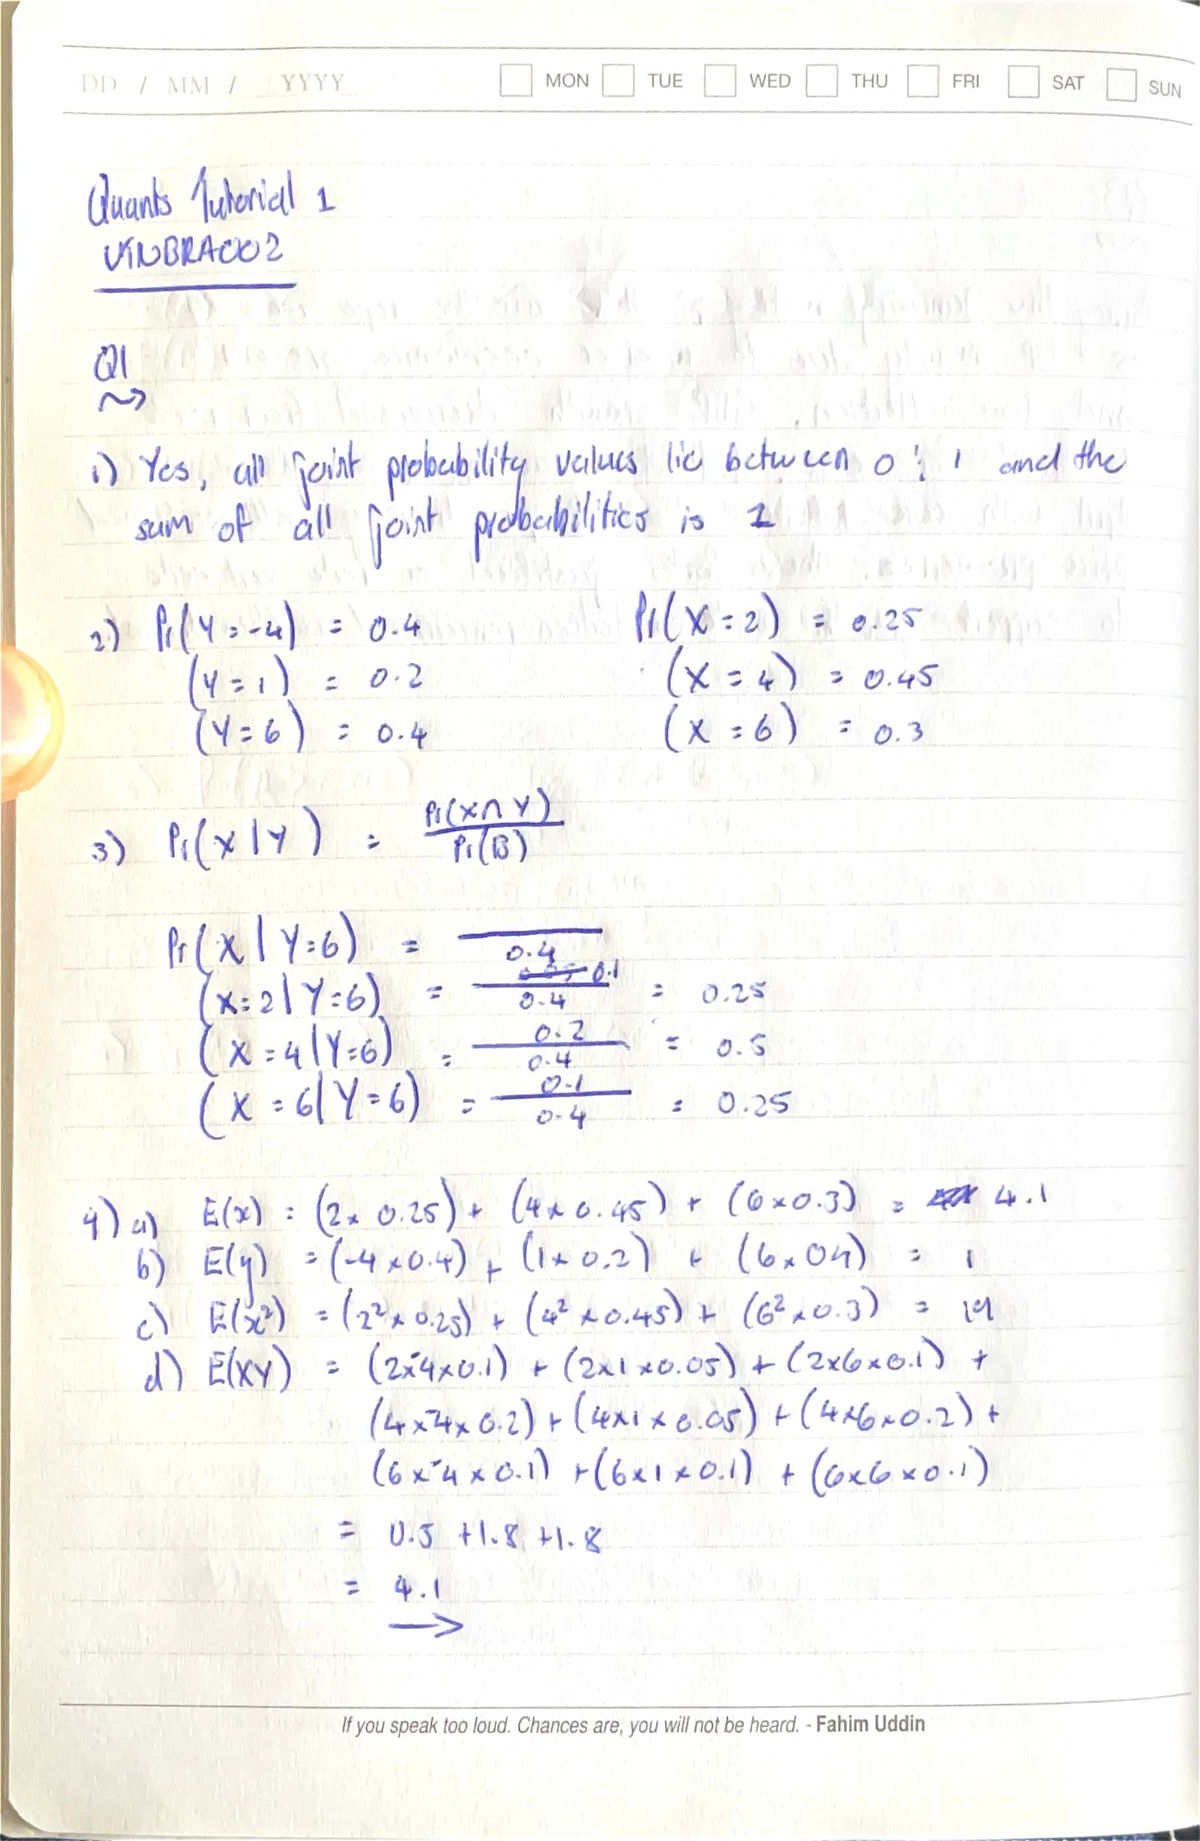 DD / MM / YYYY MON TUE WED THU FRI SAT SUN
Quants Tutorial 1
VNBRA002
Q1
1) Yes, all joint probability values lie between 0 & 1 and the
sum of all joint probabilities is 1
2) Pr(Y=-4) = 0.4 Pr(X=2) = 0.25
(Y=1) = 0.2 (X=4) = 0.45
(Y=6) = 0.4 (X=6) = 0.3
3) Pr(X|Y) = Pr(X∩Y) / Pr(B)
Pr(X|Y=6) = / 0.4
(X=2|Y=6) = 0.1 / 0.4 = 0.25
(X=4|Y=6) = 0.2 / 0.4 = 0.5
(X=6|Y=6) = 0.1 / 0.4 = 0.25
4) a) E(x) = (2×0.25) + (4×0.45) + (6×0.3) = 4.1
b) E(y) = (-4×0.4) + (1×0.2) + (6×04) = 1
c) E(x²) = (2²×0.25) + (4²×0.45) + (6²×0.3) = 19
d) E(XY) = (2×-4×0.1) + (2×1×0.05) + (2×6×0.1) +
(4×-4×0.2) + (4×1×0.05) + (4×6×0.2) +
(6×-4×0.1) + (6×1×0.1) + (6×6×0.1)
= 0.5 + 1.8 + 1.8
= 4.1
If you speak too loud. Chances are, you will not be heard. - Fahim Uddin